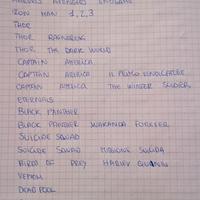 MARVEL'S AVENGERS ENDGAME
IRON MAN 1,2,3
THOR
THOR RAGNAROK
THOR THE DARK WORLD
CAPTAIN AMERICA
CAPTAIN AMERICA IL PRIMO VENDICATORE
CAPTAIN AMERICA THE WINTER SOLDIER
ETERNALS
BLACK PANTHER
BLACK PANTHER WAKANDA FOREVER
SUICIDE SQUAD
SUICIDE SQUAD MISSIONE SUICIDA
BIRDS OF PREY HARLEY QUINN
VENOM
DEADPOOL